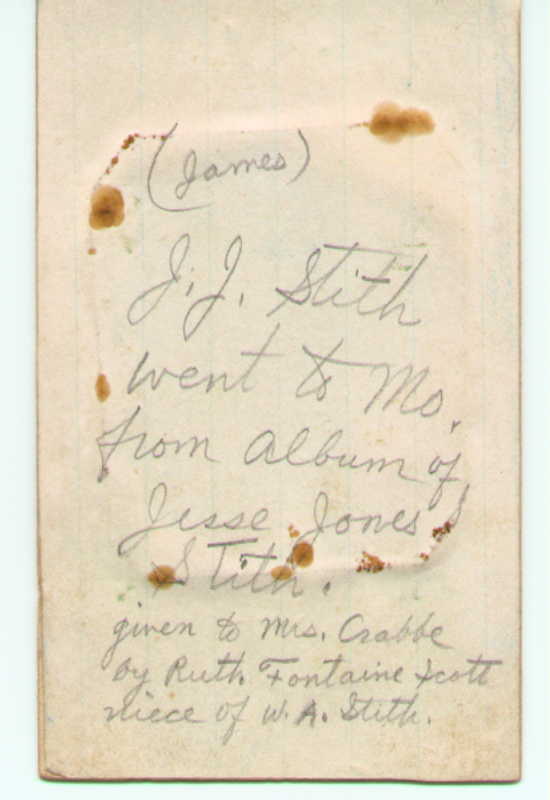 (James)
J. J. Stith
went to Mo.
from album of
Jesse Jones
Stith.
given to Mrs. Crabbe
by Ruth Fontaine Scott
niece of W. A. Stith.